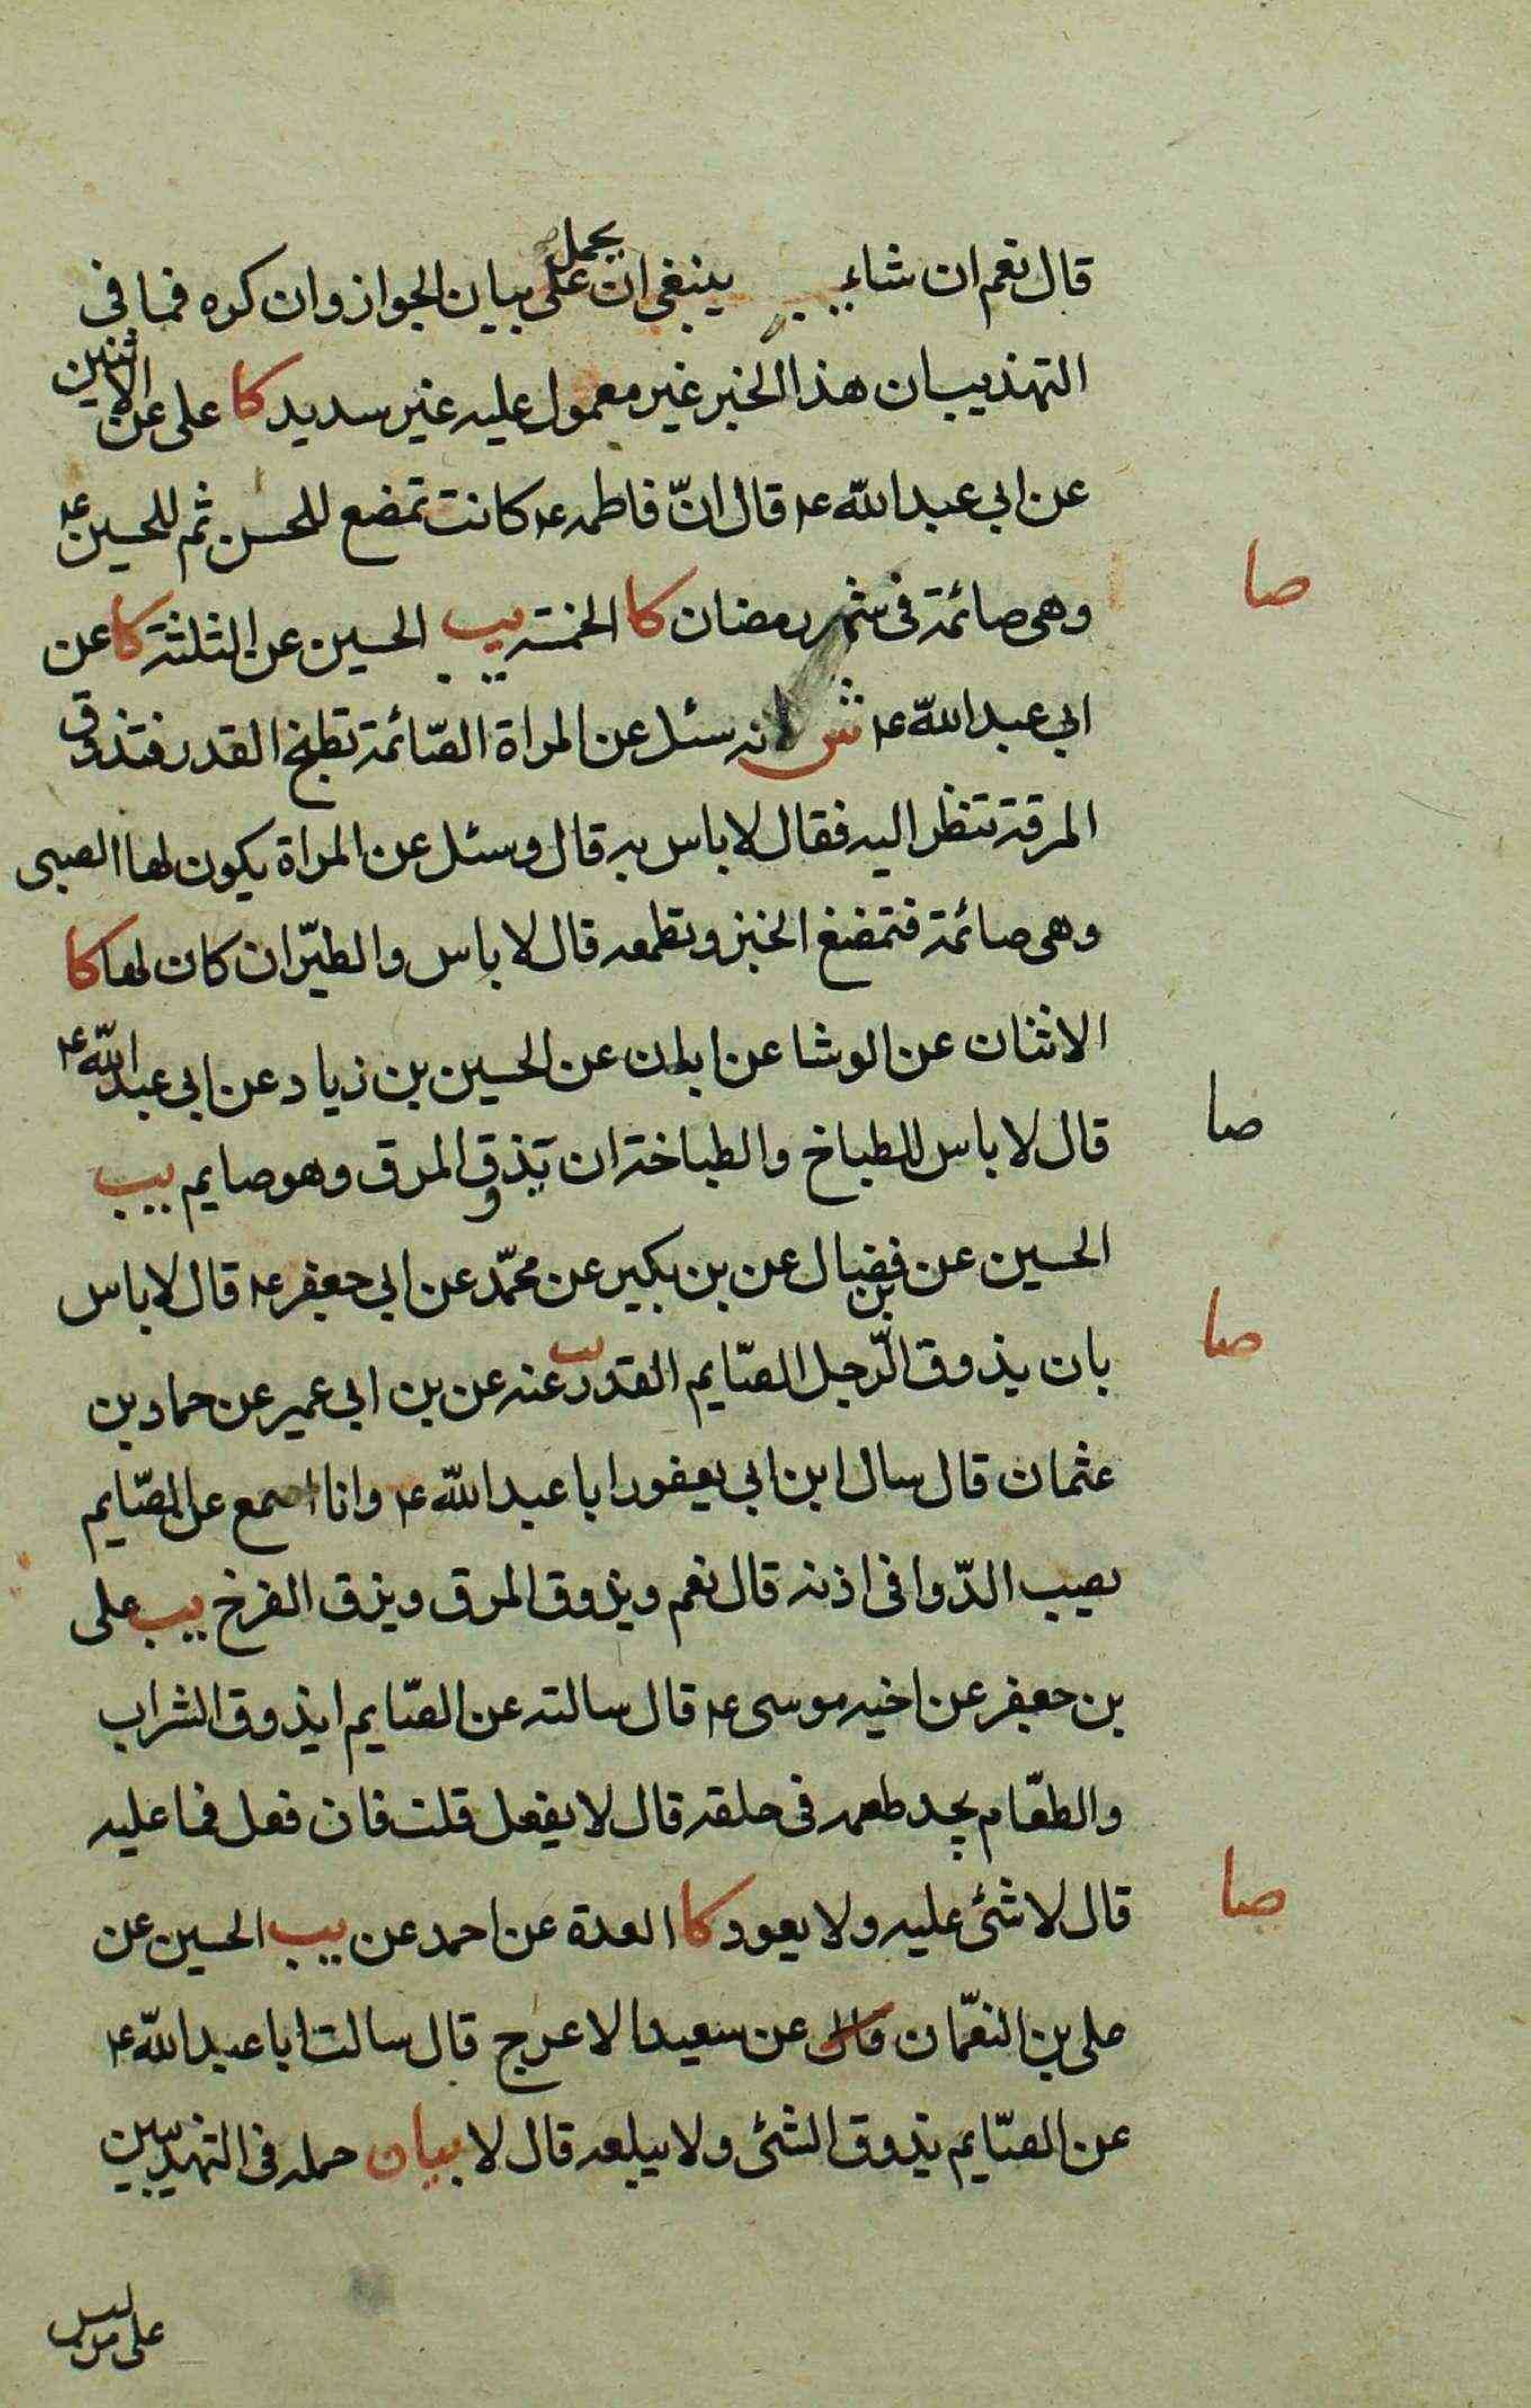 قال نعم ان شاء ينبغى ان يحمل على بيان الجواز وان كره فما فى
التهذيب ان هذا الخبر غير معمول عليه غير سديد كا على عن الاثنين
عن ابى عبد الله ع قال انّ فاطمه ع كانت تمضع للحسن ثم للحسين ع
صا
وهى صائمة فى شهر رمضان كا الخمسة يب الحسين عن الثلثة كا عن
ابى عبد الله ع ش انه سئل عن المراة الصّائمة تطبخ القدر فتذوق
المرقة تنظر اليه فقال لا باس به قال وسئل عن المراة يكون لها الصبى
وهى صائمة فتمضغ الخبز وتطمعه قال لا باس والطيّر ان كان لها كا
الاثنان عن الوشا عن ابان عن الحسين بن زياد عن ابى عبد الله ع
صا
قال لا باس للطباخ والطباخة ان يذوق المرق وهو صايم يب
الحسين عن بن فضال عن بن بكير عن محمّد عن ابى جعفر ع قال لا باس
صا
بان يذوق الرّجل الصّايم القدر يب عنه عن بن ابى عمير عن حماد بن
عثمان قال سال ابن ابى يعفور ابا عبد الله ع وانا اسمع عن الصّايم
يصيب الدّوا فى اذنه قال نعم ويذوق المرق ويزق الفرخ يب على
بن جعفر عن اخيه موسى ع قال سالته عن الصّايم ايذوق الشراب
والطعّام يجد طعمه فى حلقه قال لا يفعل قلت فان فعل فما عليه
صا
قال لا شئ عليه ولا يعود كا العدة عن احمد عن يب الحسين عن
على بن النعمّان عن سعيد الاعرج قال سالت ابا عبد الله ع
عن الصّايم يذوق الشئ ولا يبلعه قال لا بيان حمله فى التهذيبين
على من ليس